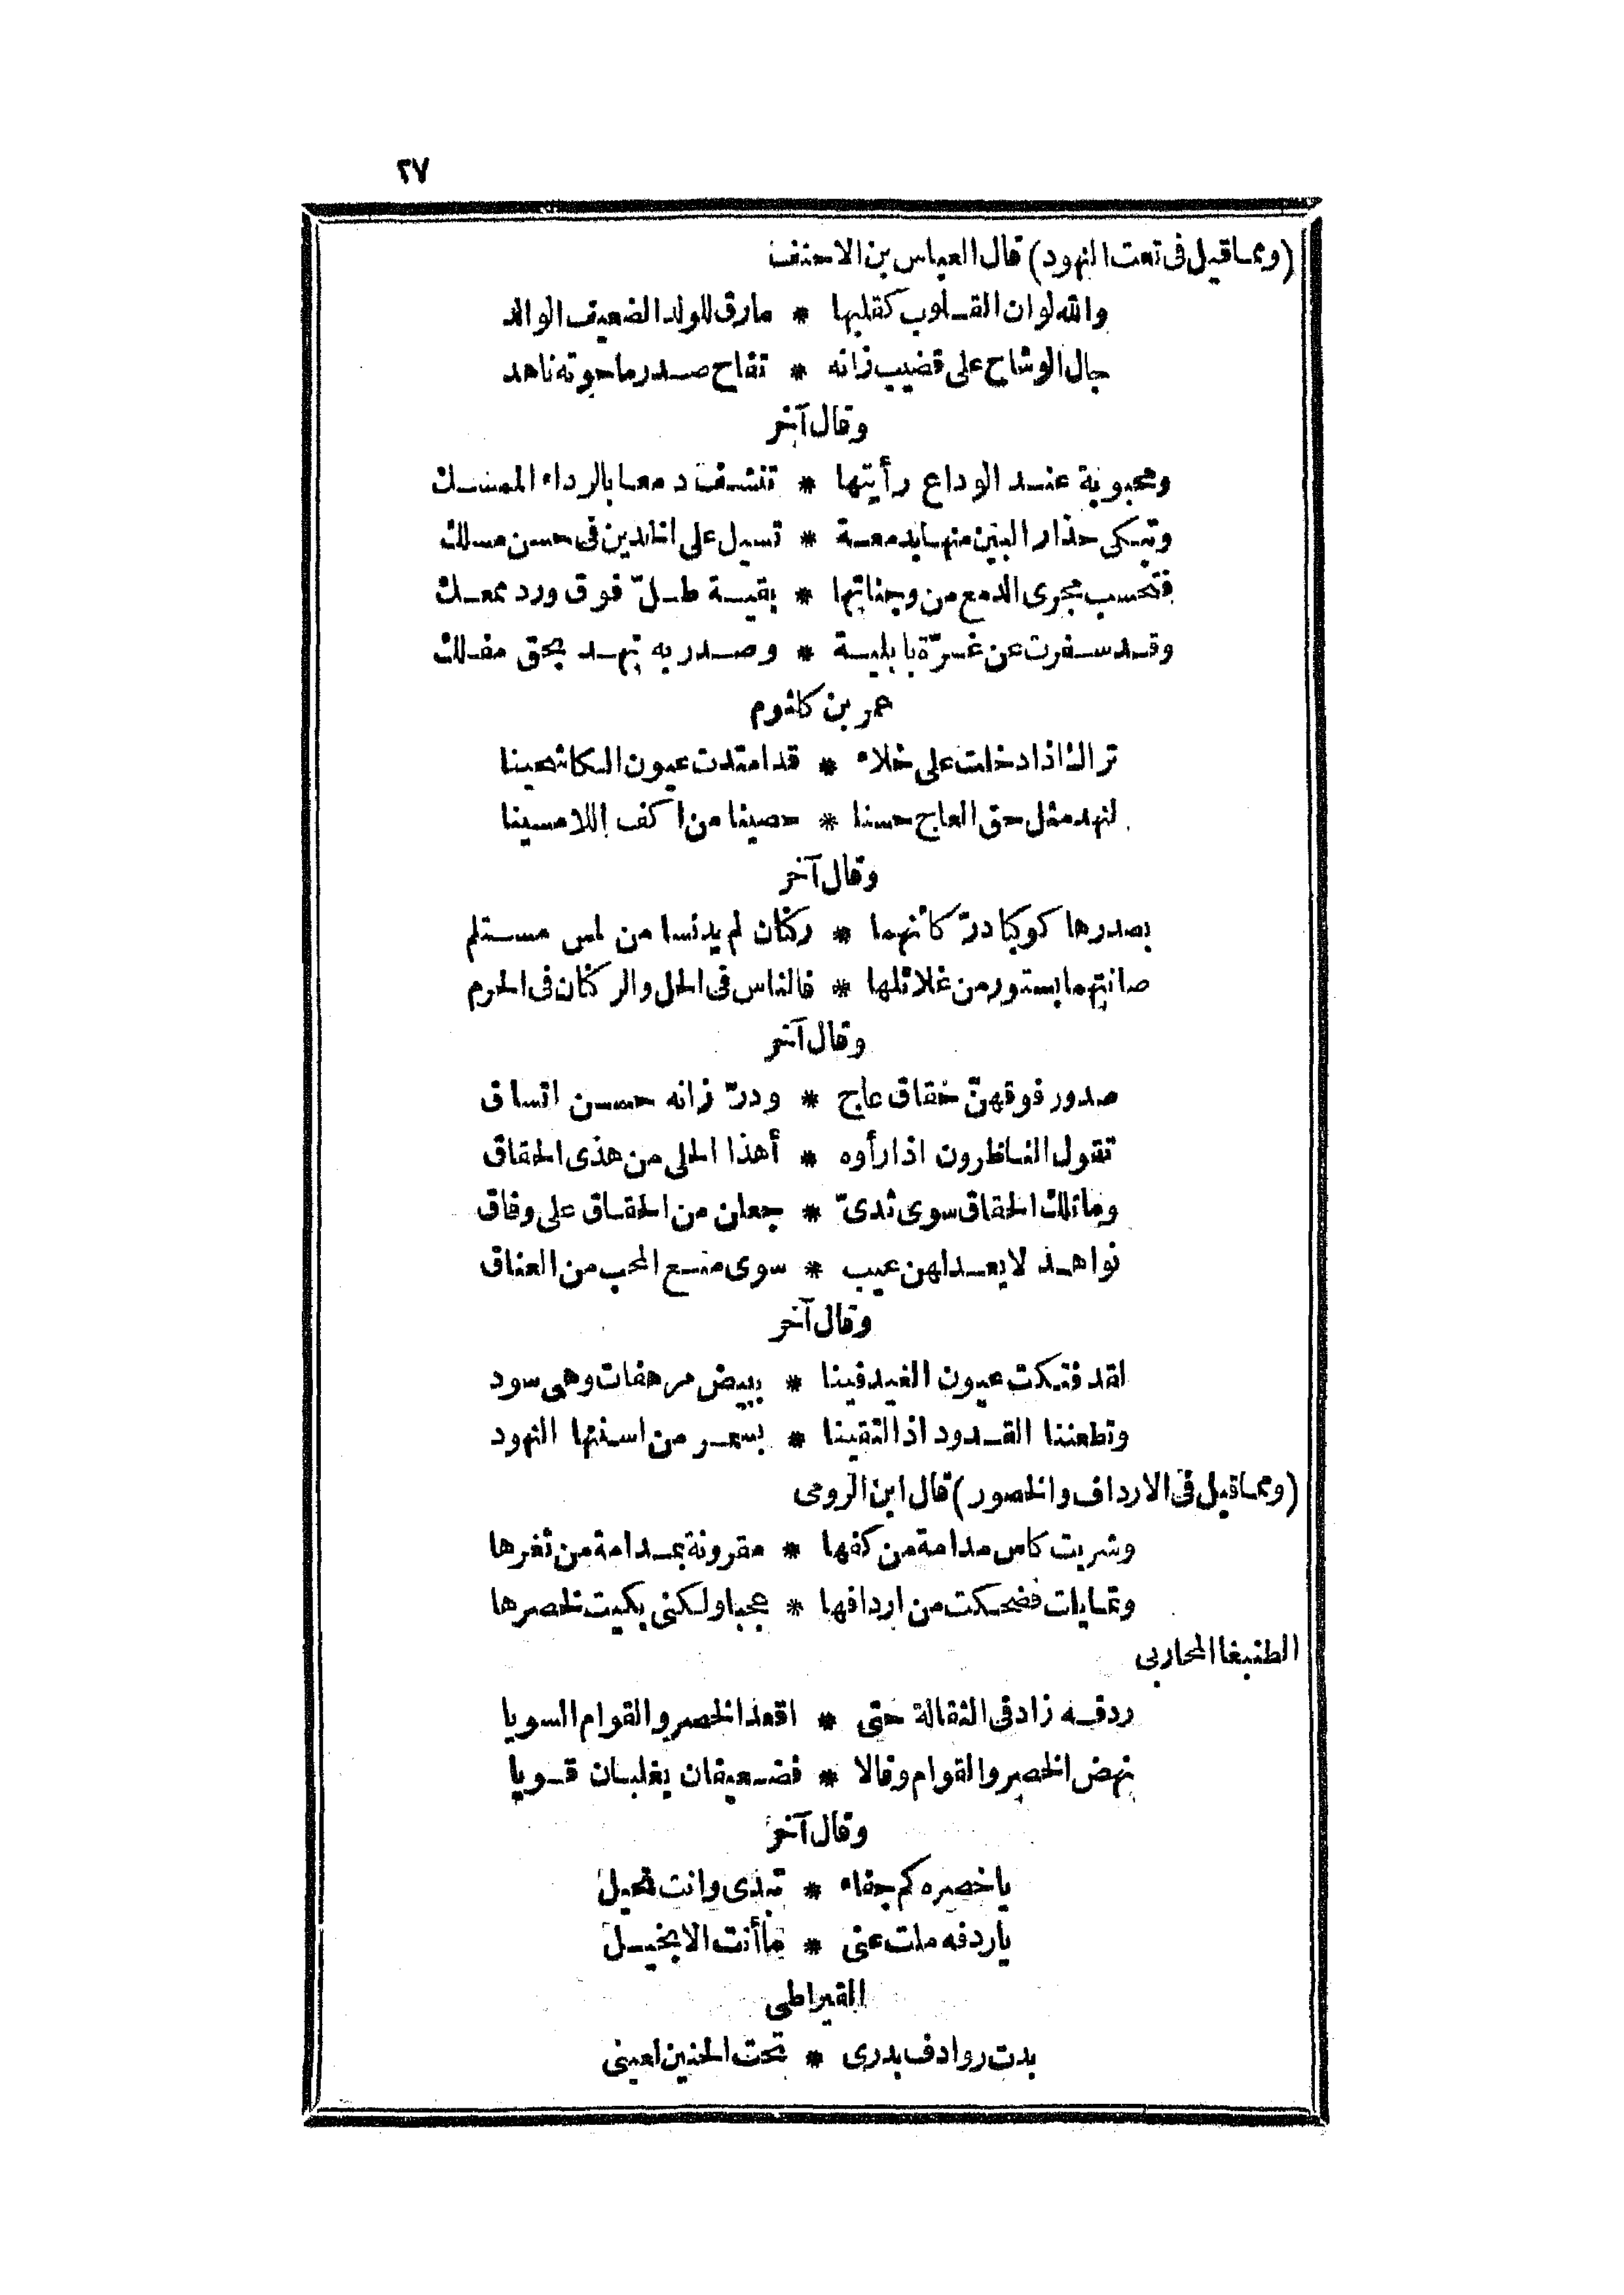 ٢٧
(ومما قيل فى نعت النهود) قال العباس بن الاحنف
والله لو ان القلوب كقلبها * مارق للولد الضعيف الوالد
جال الوشاح على قضيب زانه * تفاح صدر ما حوته ناهد
وقال آخر
ومحبوبة عند الوداع رأيتها * تنشف دمعا بالرداء الممسك
وتبكى حذار البين منها بدمعة * تسيل على الخدين فى حسن مسلك
فتحسب مجرى الدمع من وجناتها * بقية طلّ فوق ورد ممعك
وقد سفرت عن غرّة بابلية * وصدر به نهد بحق مفلك
عمر بن كلثوم
تراك اذا دخلت على خلاء * قد امتدت عيون الكاشحينا
لنهد مثل حق العاج حسنا * حصينا من اكف اللامسينا
وقال آخر
بصدرها كوكبا درّ كأنهما * ركنان لم يدنسا من لمس مستلم
صانتهما بستور من غلائلها * فالناس فى الحل والركنان فى الحرم
وقال آخر
صدور فوقهنّ حقاق عاج * ودرّ زانه حسن اتساق
تقول الناظرون اذا رأوه * أهذا الحلى من هذى الحقاق
وما تلك الحقاق سوى ثدىّ * جعلن من الحقاق على وفاق
نواهد لا يعد لهن عيب * سوى منع المحب من العناق
وقال آخر
لقد فتكت عيون الغيد فينا * ببيض مرهفات وهى سود
وتطعننا القدود اذ التقينا * بسمر من اسنتها النهود
(ومما قيل فى الارداف والخصور) قال ابن الرومى
وشربت كاس مدامة من كفها * مقرونة بمدامة من ثغرها
وتمايلت فضحكت من اردافها * عجبا ولكنى بكيت لخصرها
الطنبغا المحاربى
ردفه زاد فى الثقالة حتى * اقعد الخصر والقوام السويا
نهض الخصر والقوام وقالا * فضعيفان يغلبان قويا
وقال آخر
يا خصره كم جفاء * تبدى وانت نحيل
يا ردفه ملت عنى * ما أنت الا بخيل
القيراطى
بدت روادف بدرى * تحت الحنين لعينى